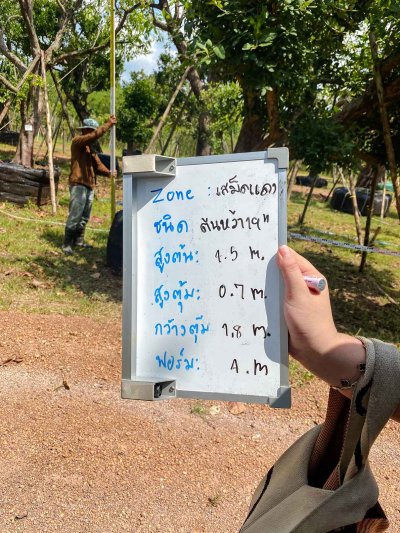 Zone : เสม็ดแดง
ชนิด ตีนหว้า 19"
สูงต้น: 4.5 m.
สูงตุ้ม: 0.7 m.
กว้างตุ้ม 1.8 m.
ฟอร์ม: A.m